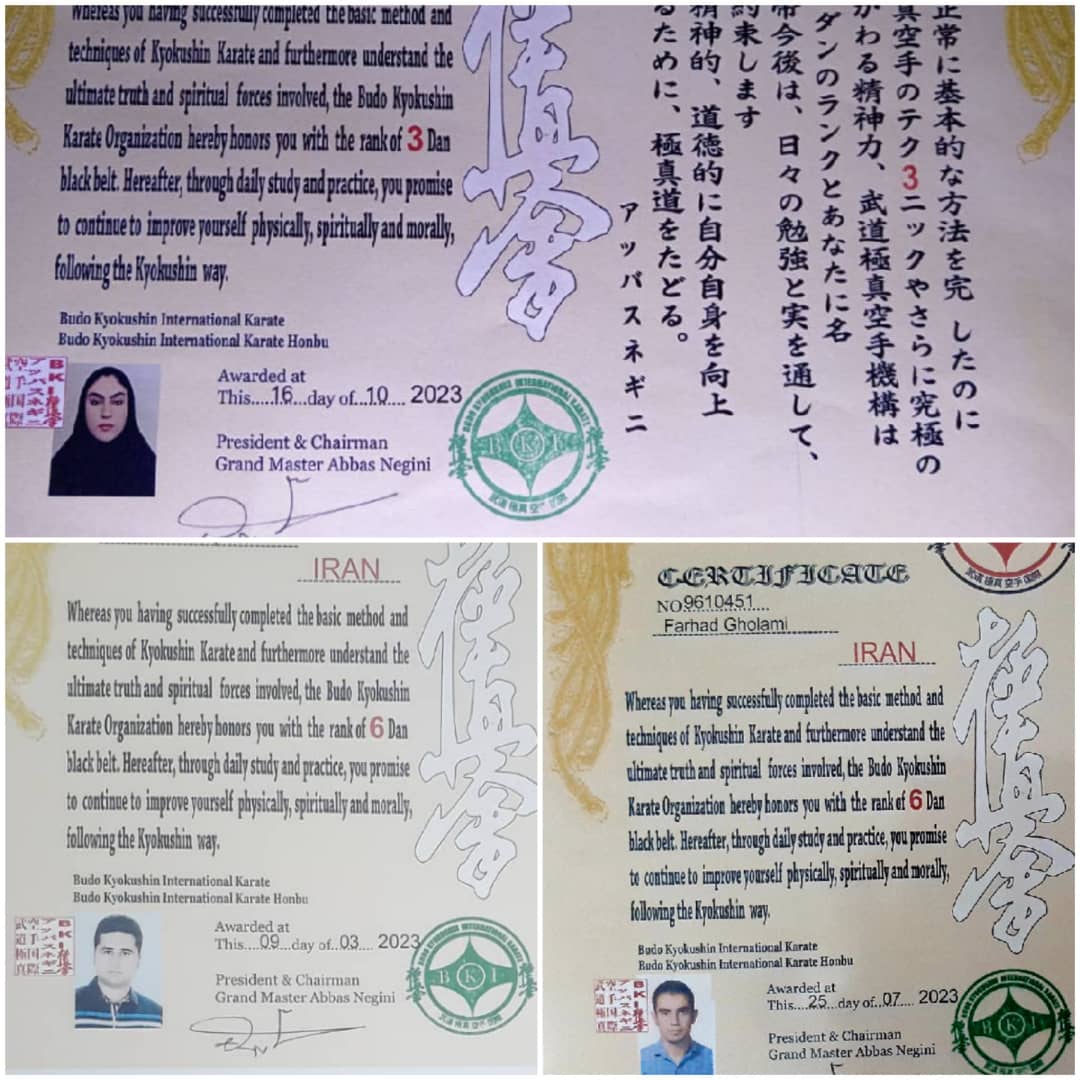 Whereas you having successfully completed the basic method and
techniques of Kyokushin Karate and furthermore understand the
ultimate truth and spiritual forces involved, the Budo Kyokushin
Karate Organization hereby honors you with the rank of 3 Dan
black belt. Hereafter, through daily study and practice, you promise
to continue to improve yourself physically, spiritually and morally,
following the Kyokushin way.
Budo Kyokushin International Karate
Budo Kyokushin International Karate Honbu
Awarded at
This....16...day of...10.... 2023
President & Chairman
Grand Master Abbas Negini
極真會
正常に基本的な方法を完 したのに
真空手のテク3ニックやさらに究極の
かわる精神力、武道極真空手機構は
ダンのランクとあなたに名
帯今後は、日々の勉強と実を通して、
約束します
精神的、道徳的に自分自身を向上
るために、極真道をたどる。
アッバスネギニ
BKI極真會
アッバスネギニ
空手国際
武道極真
BUDO KYOKUSHIN INTERNATIONAL KARATE
BKI
極真會
極真會
武道 極真 空手 国際
IRAN
Whereas you having successfully completed the basic method and
techniques of Kyokushin Karate and furthermore understand the
ultimate truth and spiritual forces involved, the Budo Kyokushin
Karate Organization hereby honors you with the rank of 6 Dan
black belt. Hereafter, through daily study and practice, you promise
to continue to improve yourself physically, spiritually and morally,
following the Kyokushin way.
Budo Kyokushin International Karate
Budo Kyokushin International Karate Honbu
Awarded at
This....09...day of...03.... 2023
President & Chairman
Grand Master Abbas Negini
極真會
BKI極真會
アッバスネギニ
空手国際
武道極真
BUDO KYOKUSHIN INTERNATIONAL KARATE
BKI
極真會
極真會
武道 極真 空手 国際
武道 極真 空手 国際
CERTIFICATE
NO.9610451....
Farhad Gholami
IRAN
Whereas you having successfully completed the basic method and
techniques of Kyokushin Karate and furthermore understand the
ultimate truth and spiritual forces involved, the Budo Kyokushin
Karate Organization hereby honors you with the rank of 6 Dan
black belt. Hereafter, through daily study and practice, you promise
to continue to improve yourself physically, spiritually and morally,
following the Kyokushin way.
Budo Kyokushin International Karate
Budo Kyokushin International Karate Honbu
Awarded at
This....25...day of...07.... 2023
President & Chairman
Grand Master Abbas Negini
極真會
BKI極真會
アッバスネギニ
空手国際
武道極真
BUDO KYOKUSHIN INTERNATIONAL KARATE
BKI
極真會